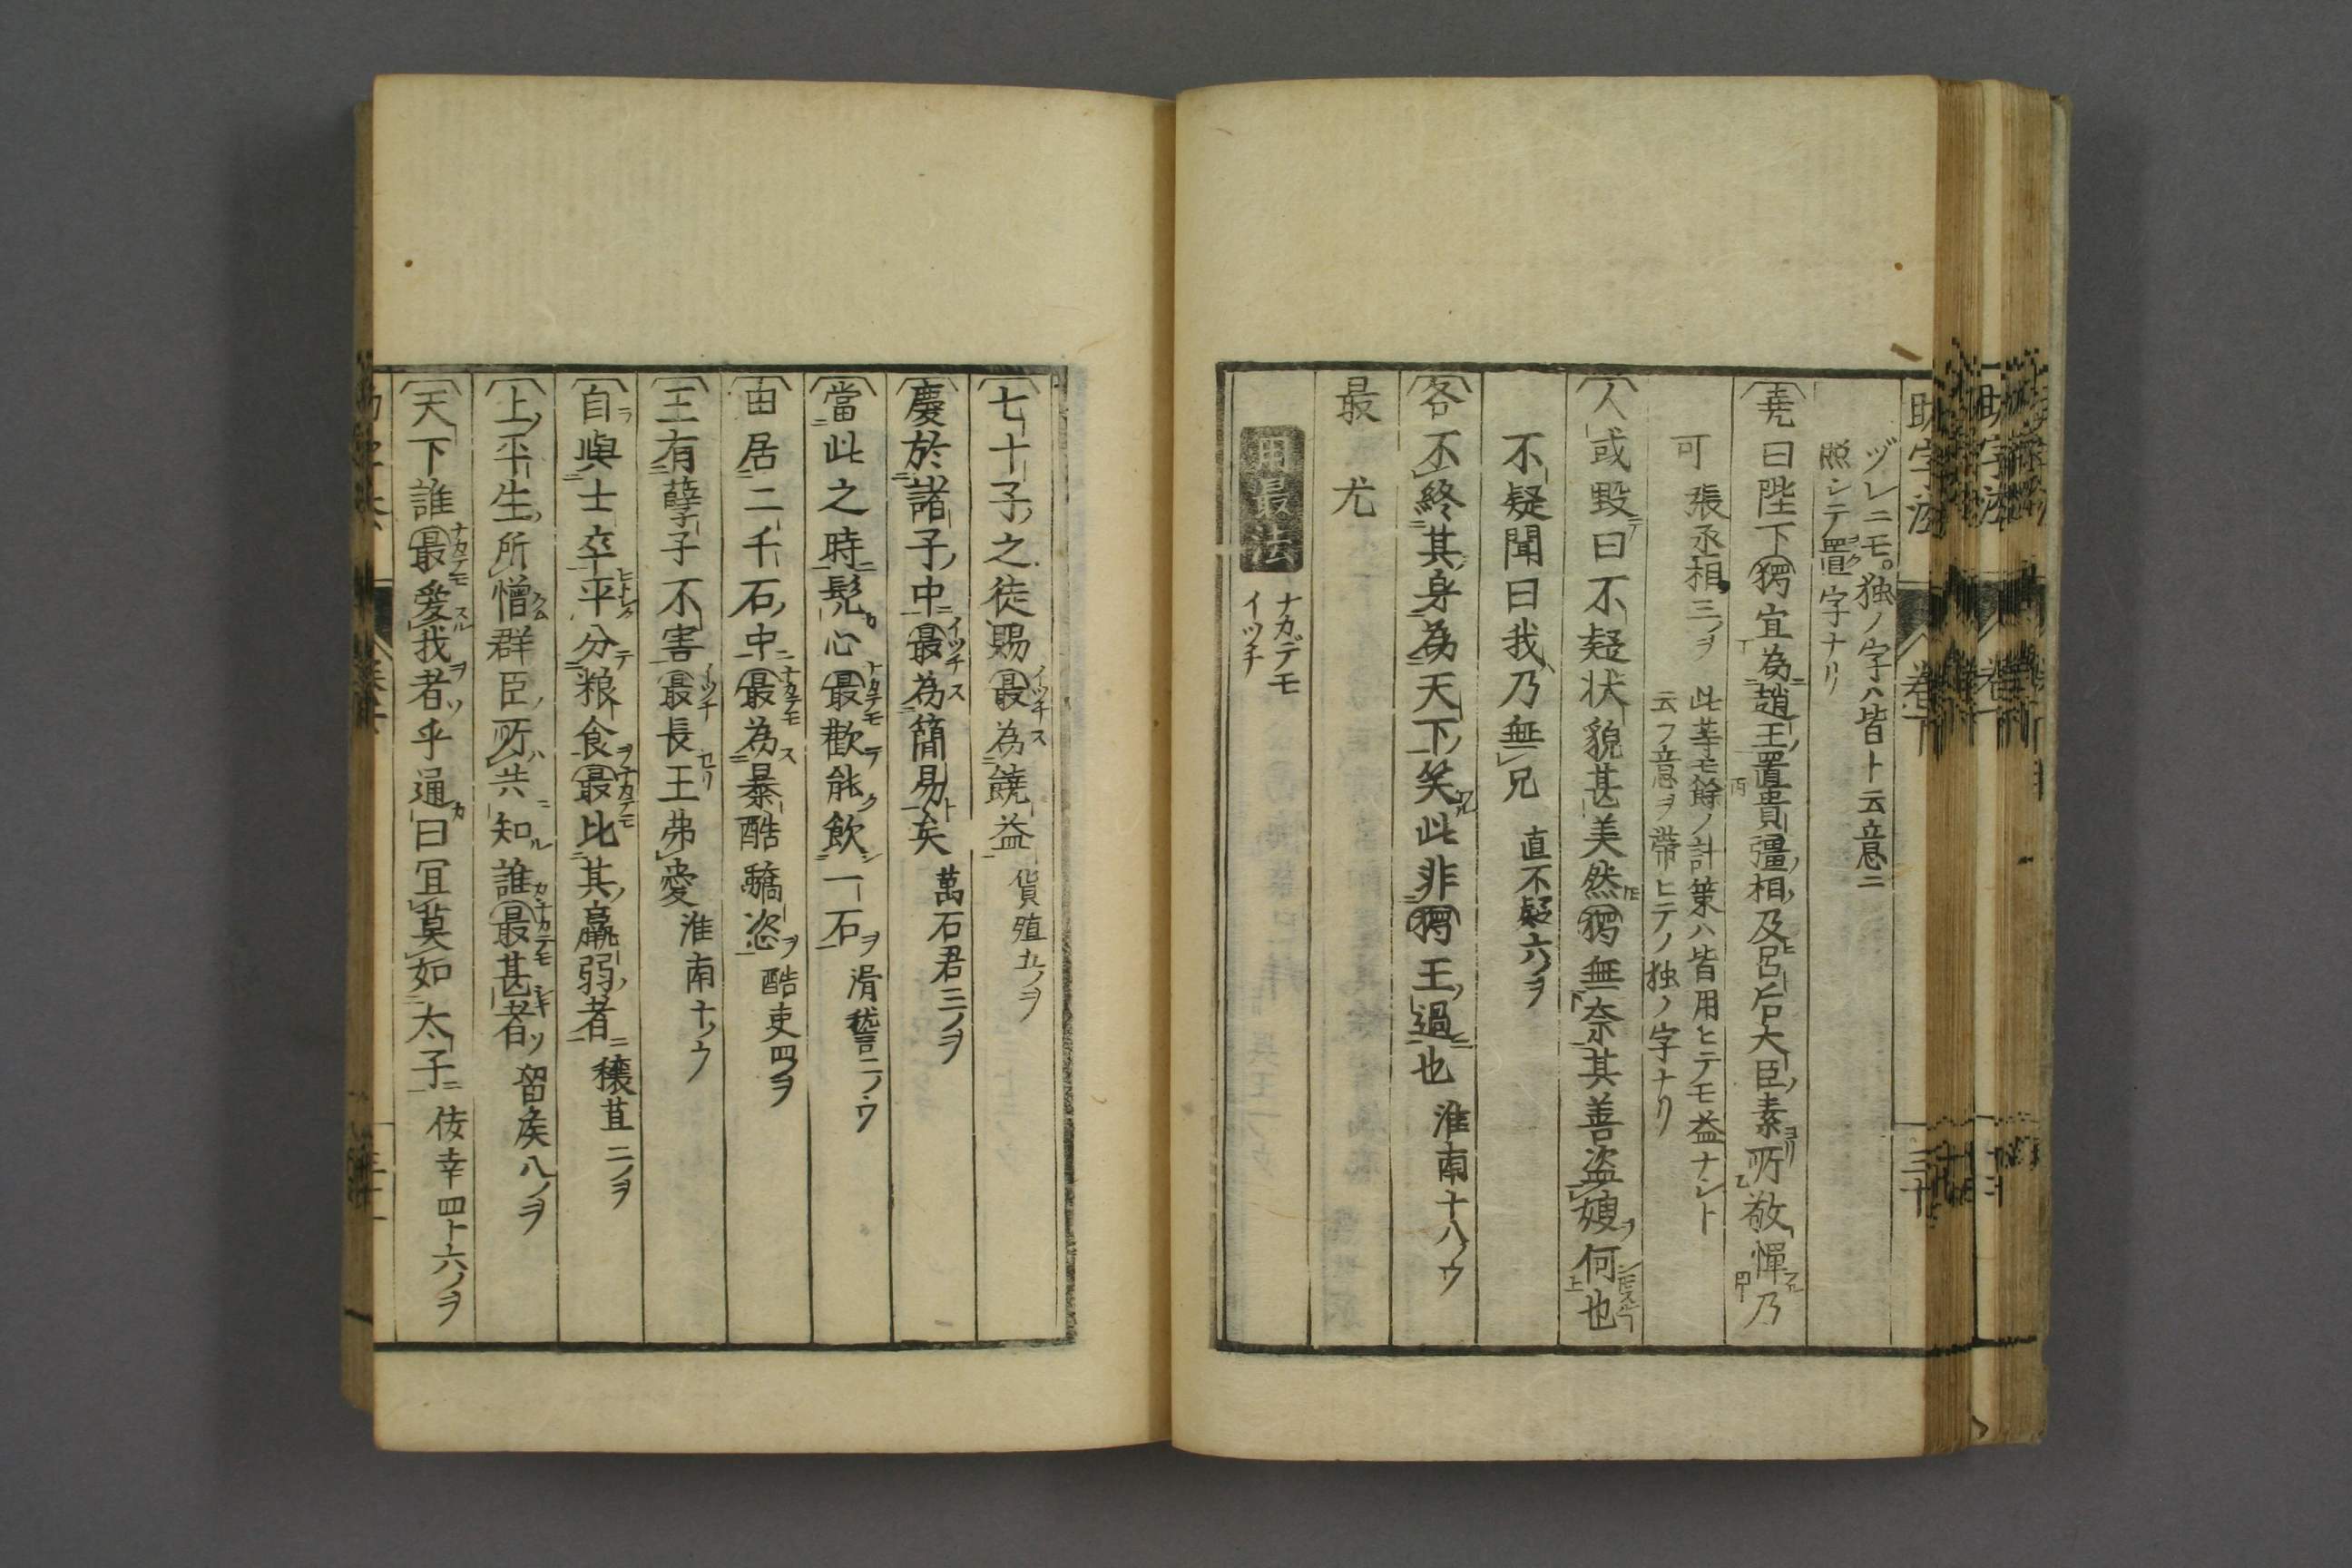 ヅレニモ。独ノ字ハ皆ト云意ニ
照シテ置ク字ナリ
堯曰陛下獨宜為趙王置貴彊相及呂后大臣素所敬憚乃
可 張丞相三ノヲ 此等モ餘ノ計策ハ皆用ヒテモ益ナシト
云フ意ヲ帶ヒテノ独ノ字ナリ
人或毀曰不疑状貌甚美然獨無奈其善盜嫂何也
不疑聞曰我乃無兄 直不疑六ノヲ
各不終其身為天下笑此非獨王過也 淮南十八ノウ
最 尤
用最法 ナカデモ イッチ
七十子之徒賜最為饒益 貨殖五ノヲ
慶於諸子中最為簡易矣 萬石君三ノヲ
當此之時髡心最歡能飲一石 滑稽二ノウ
由居二千石中最為暴酷驕恣 酷吏四ノヲ
王有孽子不害最長王弗愛 淮南十ノウ
自與士卒平分粮食最比其羸弱者 穰苴二ノヲ
上平生所憎群臣所共知誰最甚者 留侯八ノヲ
天下誰最愛我者乎通曰冝莫如太子 佞幸四ト六ノヲ
助字法 卷下 三十